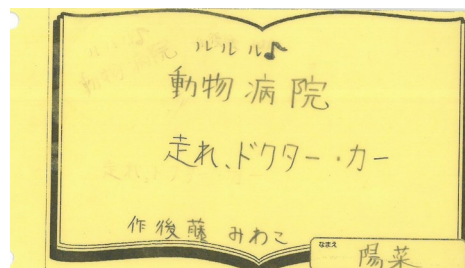 ルルル♪
動物病院
走れ、ドクター・カー
作後藤 みわこ
なまえ
陽菜